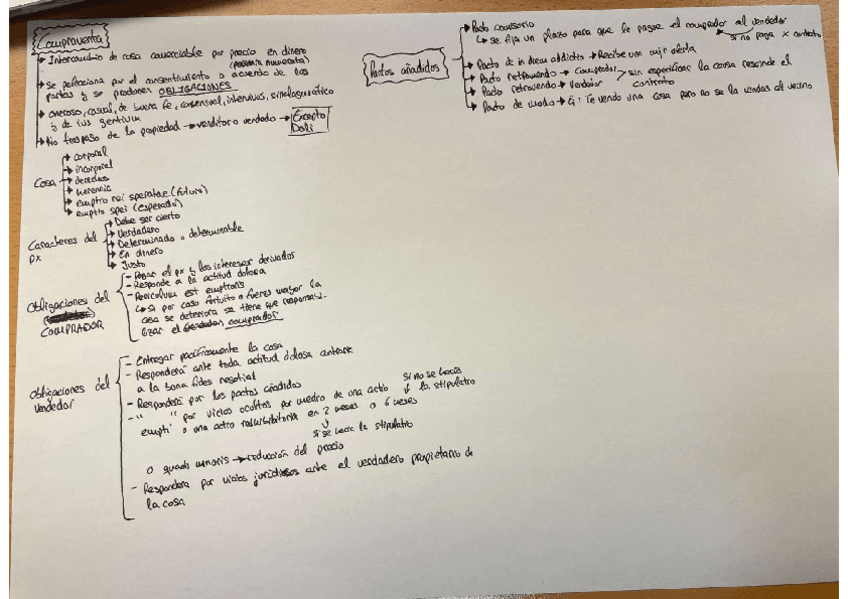 Compraventa
→ Intercambio de cosa comerciable por precio en dinero
(pecunia numerata)
→ Se perfecciona por el consentimiento o acuerdo de las
partes y se producen OBLIGACIONES
→ oneroso, causal, de buena fe, consensual, intervivos, sinalagmático
o de ius gentium
→ No traspaso de la propiedad → venditor o vendedor → Excepto
Doli
Cosa
→ corporal
→ incorporal
→ derechos
→ herencia
→ emptio rei speratae (futuro)
→ emptio spei (esperado)
Caracteres del
px
→ Debe ser cierto
→ Verdadero
→ Determinado o determinable
→ En dinero
→ Justo
Obligaciones del
COMPRADOR
- Pagar el px y los intereses derivados
- Responde a la actitud dolosa
- Periculum est emptoris
↳ Si por caso fortuito o fuerza mayor la
cosa se deteriora se tiene que responsabi-
lizar el comprador
Obligaciones del
vendedor
- Entregar pacíficamente la cosa
- Responderá ante toda actitud dolosa contraria
a la bona fides negotial
- Responderá por los pactos añadidos
- " " por vicios ocultos por medio de una actio
empti o una actio redhibitoria en 2 meses o 6 meses
si no se hacía
↓ la stipulatio
↓
si se hace la stipulatio
o quanti minoris → reducción del precio
- Responderá por vicios jurídicos ante el verdadero propietario de
la cosa
Pactos añadidos
→ Pacto comisorio
↳ se fija un plazo para que se pague el comprador al vendedor
si no paga x contrato
→ Pacto de in diem addictio → Recibe una mejor oferta
→ Pacto retroemendo → Comprador
→ Pacto retrovendo → Vendedor
sin especificar la causa rescinde el
contrato
→ Pacto de modo → Ej: Te vendo una cosa pero no se la vendas al vecino